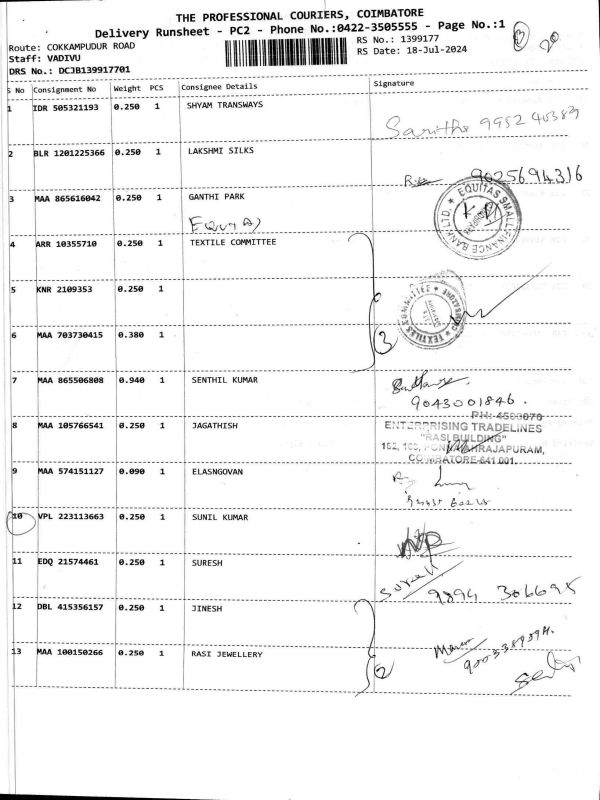 THE PROFESSIONAL COURIERS, COIMBATORE
Delivery Runsheet - PC2 - Phone No.:0422-3505555 - Page No.:1
13 20
Route: COKKAMPUDUR ROAD
RS No.: 1399177
Staff: VADIVU
RS Date: 18-Jul-2024
DRS No.: DCJB139917701
S No Consignment No Weight PCS Consignee Details Signature
1 IDR 505321193 0.250 1 SHYAM TRANSWAYS
2 BLR 1201225366 0.250 1 LAKSHMI SILKS
9025694316
3 MAA 865616042 0.250 1 GANTHI PARK
EQUITAS SMALL FINANCE BANK LTD.
4 ARR 10355710 0.250 1 TEXTILE COMMITTEE
5 KNR 2109353 0.250 1
TEXTILES COMMITTEE COIMBATORE
6 MAA 703730415 0.380 1
3
7 MAA 865506808 0.940 1 SENTHIL KUMAR
9043001846.
8 MAA 105766541 0.250 1 JAGATHISH
PH: 4500070
ENTERPRISING TRADELINES
"RASI BUILDING"
COIMBATORE-641 001.
9 MAA 574151127 0.090 1 ELASNGOVAN
10 VPL 223113663 0.250 1 SUNIL KUMAR
11 EDQ 21574461 0.250 1 SURESH
Suresh
9894 306695
12 DBL 415356157 0.250 1 JINESH
13 MAA 100150266 0.250 1 RASI JEWELLERY
2